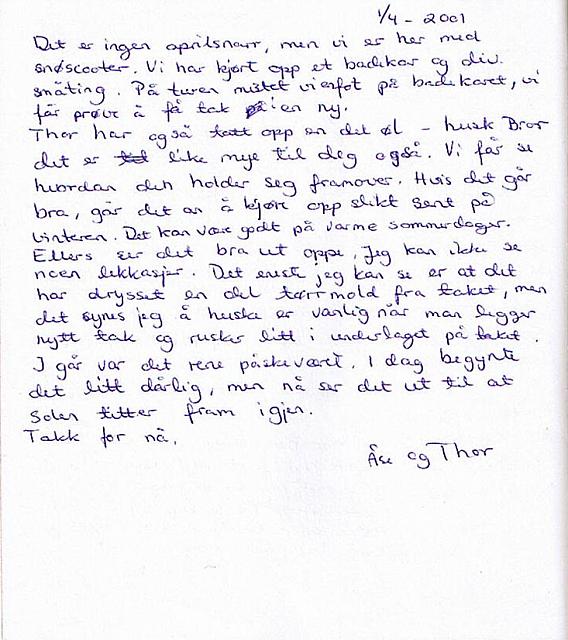 1/4 - 2001
Det er ingen aprilsnarr, men vi er her med
snøscooter. Vi har kjørt opp et badekar og div.
småting. På turen mistet vi en fot på badekaret, vi
får prøve å få tak i en ny.
Thor har også tatt opp en del øl - husk Bror
det er like mye til deg også. Vi får se
hvordan den holder seg framover. Hvis det går
bra, går det an å kjøre opp slikt sent på
vinteren. Det kan være godt på varme sommerdager.
Ellers ser det bra ut oppe. Jeg kan ikke se
noen lekkasjer. Det eneste jeg kan se er at det
har drysset en del tørrmold fra taket, men
det synes jeg å huske er vanlig når man legger
nytt tak og rusker litt i underlaget på taket.
I går var det rene påskeværet. I dag begynte
det litt dårlig, men nå ser det ut til at
Solen titter fram igjen.
Takk for nå.
Åse og Thor